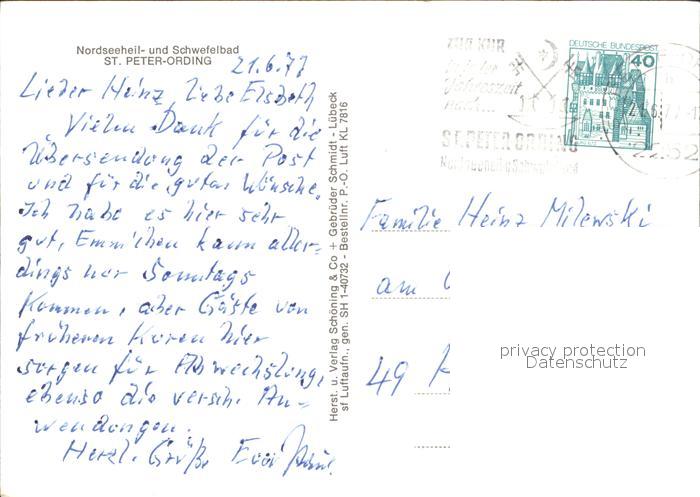 Nordseeheil- und Schwefelbad
ST. PETER-ORDING
21.6.77
Lieder Heinz, liebe Elsbeth
Vielen Dank für die
Übersendung der Post
und für die guten Wünsche.
Ich habe es hier sehr
gut, Emmichen kann aller-
dings nur Sonntags
kommen, aber Gäste von
früheren Kuren hier
sorgen für Abwechslung,
ebenso die versch. An-
wendungen.
Herzl. Grüße
Herst. u. Verlag Schöning & Co + Gebrüder Schmidt - Lübeck
sf Luftaufn., gen. SH 1-40732 - Bestellnr. P.-O. Luft KL 7816
ZUR KUR
zu jeder
Jahreszeit
nach...
ST. PETER ORDING
Nordseeheil u Schwefelbad
DEUTSCHE BUNDESPOST
40
Familie Heinz Milewski
am
49
privacy protection
Datenschutz